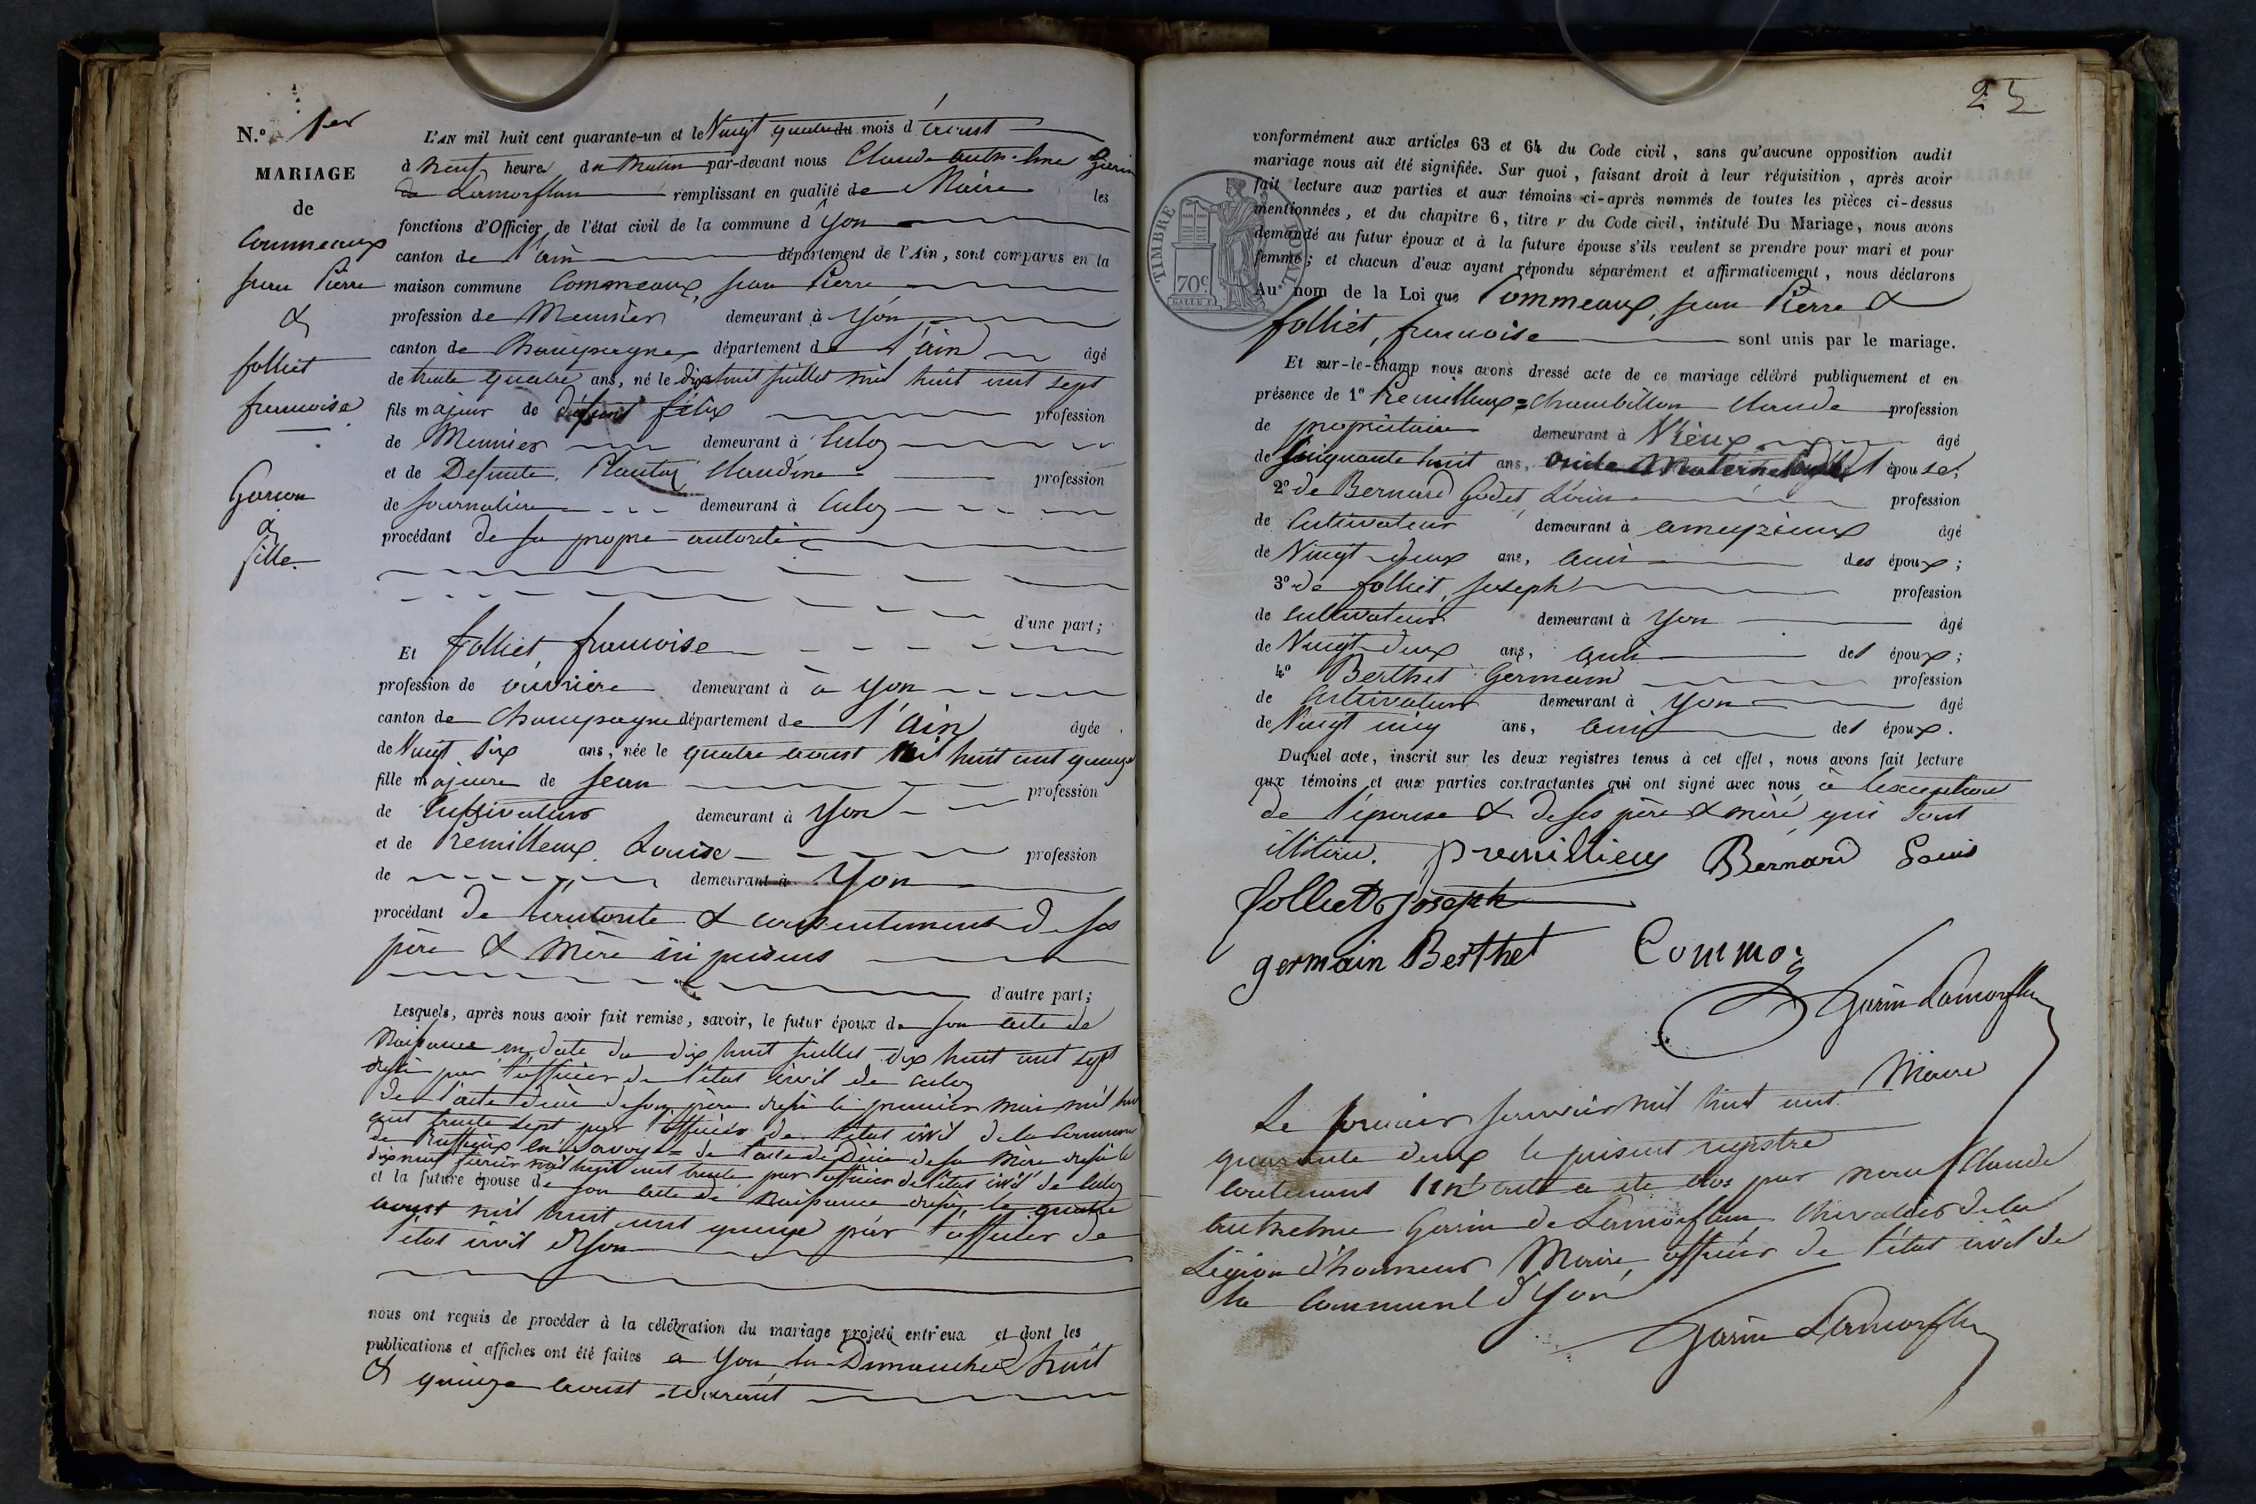 N.º 1er
MARIAGE
de
Commeaux
Jean Pierre
&
folliet
francoise
Garcon
&
fille.
L'AN mil huit cent quarante-un et le Vingt quatre du mois d'Aoust
à neuf heure du Matin par-devant nous Claude anthelme Garin
de Lamorflan remplissant en qualité de Maire les
fonctions d'Officier de l'état civil de la commune d'yon
canton de l'ain département de l'Ain, sont comparus en la
maison commune Commeaux, Jean Pierre
profession de Meunier demeurant à yon
canton de Champagne département de l'ain âgé
de trente quatre ans, né le dix huit juillet mil huit cent sept
fils majeur de défunt félix profession
de Meunier demeurant à Culoz
et de Defunte Claudine profession
de Journaliere demeurant à Culoz
procédant de sa propre autorité
d'une part;
Et folliet, francoise
profession de ouvriere demeurant à à yon
canton de Champagne département de l'ain âgée
de Vingt six ans, née le quatre aoust mil huit cent quinze
fille majeure de Jean profession
de Cultivateur demeurant à yon
et de Remilleux Louise profession
de demeurant à yon
procédant de l'autorité & consentement de ses
père & mère ici présens
d'autre part;
Lesquels, après nous avoir fait remise, savoir, le futur époux de son acte de
Naissance en date du dix huit juillet dix huit cent sept
dressé par l'officier de l'état civil de culoz
de l'acte de décès de son père dressé le premier mai mil huit
cent trente sept par l'officier de l'état civil de la Commune
de Ruffieux en Savoye = de l'acte de Décès de sa Mère dressé le
dix neuf février mil huit cent trente par l'officier de l'état civil de Culoz
et la future épouse de son acte de Naissance dressé le quatre
aoust mil huit cent quinze par l'officier de
l'état civil d'yon
nous ont requis de procéder à la célébration du mariage projeté entr'eux et dont les
publications et affiches ont été faites a yon les Dimanches huit
& quinze aoust courant
25
conformément aux articles 63 et 64 du Code civil, sans qu'aucune opposition audit
mariage nous ait été signifiée. Sur quoi, faisant droit à leur réquisition, après avoir
fait lecture aux parties et aux témoins ci-après nommés de toutes les pièces ci-dessus
mentionnées, et du chapitre 6, titre v du Code civil, intitulé Du Mariage, nous avons
demandé au futur époux et à la future épouse s'ils veulent se prendre pour mari et pour
femme; et chacun d'eux ayant répondu séparément et affirmativement, nous déclarons
TIMBRE ROYAL
70c
Au nom de la Loi que Commeaux, Jean Pierre &
folliet, francoise sont unis par le mariage.
Et sur-le-champ nous avons dressé acte de ce mariage célébré publiquement et en
présence de 1º Remilleux = Chambillon Claude profession
de propriétaire demeurant à Vieux âgé
de Cinquante huit ans, oncle Maternel de l'épouse;
2º de Bernard Godet, Louis profession
de Cultivateur demeurant à ameyzieux âgé
de Vingt deux ans, ami des époux;
3º de folliet, Joseph profession
de cultivateur demeurant à yon âgé
de Vingt deux ans, ami des époux;
4º Berthet Germain profession
de Cultivateur demeurant à yon âgé
de Vingt cinq ans, ami des époux.
Duquel acte, inscrit sur les deux registres tenus à cet effet, nous avons fait lecture
aux témoins et aux parties contractantes qui ont signé avec nous à l'exception
de l'épouse & de ses père & mère, qui sont
illiteré. premillieux Bernard Louis
folliet Joseph
germain Berthet Commoz
Garin Lamorflan
Maire
Le premier janvier mil huit cent
quarante deux le présent registre
contenant Un acte a été clos par nous Claude
anthelme Garin de Lamorflan Chevalier de la
Légion d'honneur Maire, officier de l'état civil de
la Commune d'yon
Garin Lamorflan